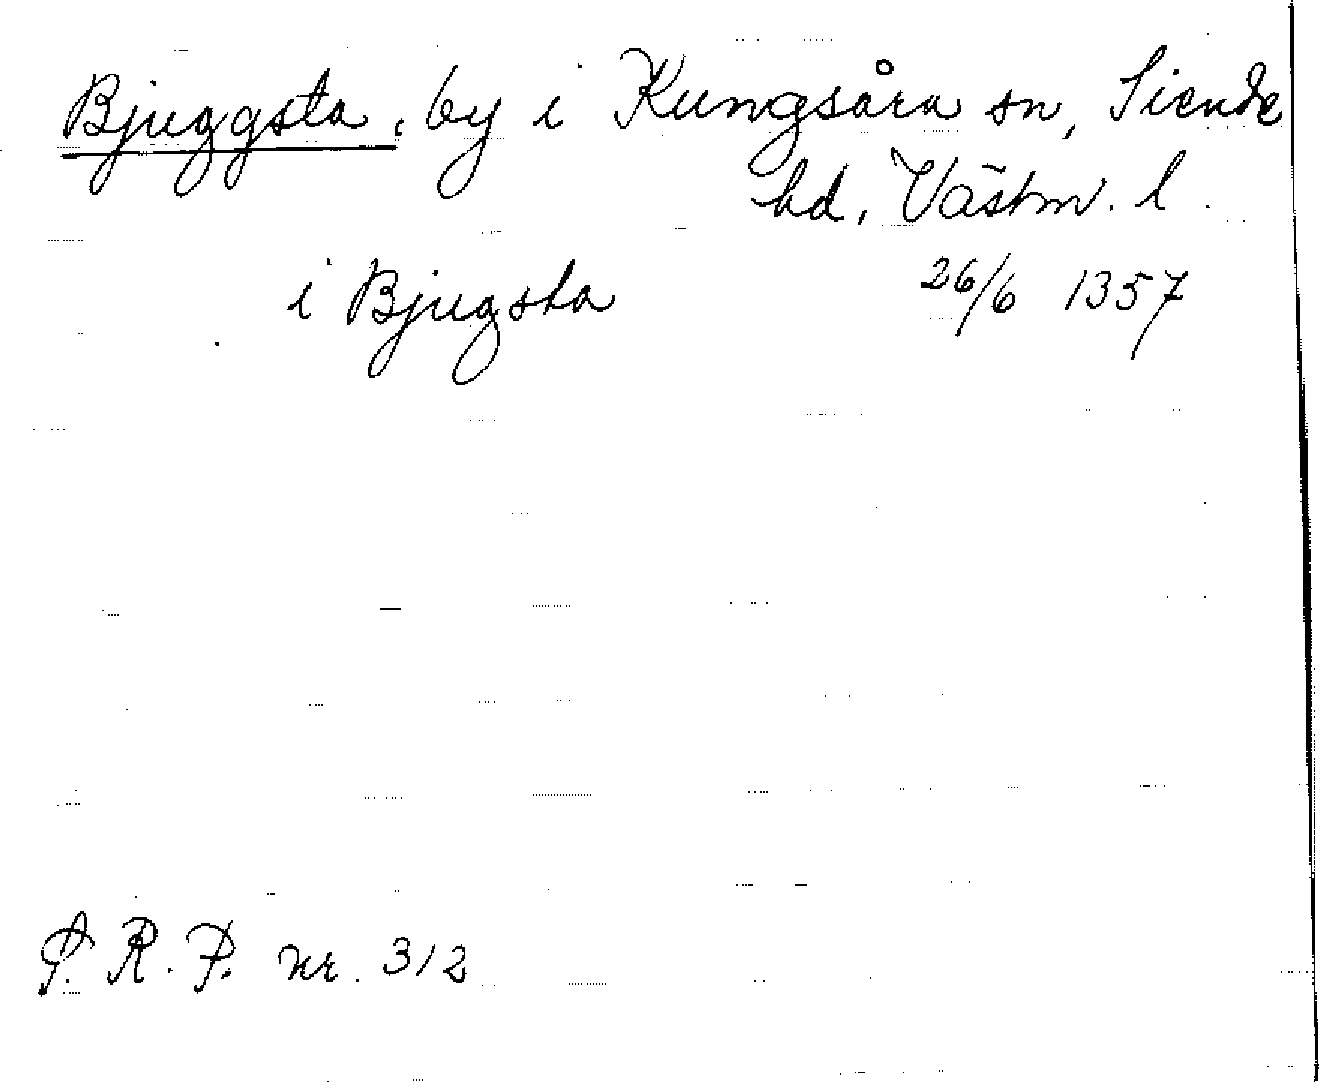 Bjuggsta, by i Kungsåra sn, Siende
hd, Västm. l.
i Bjugsta 26/6 1357
S. R. P. nr. 312